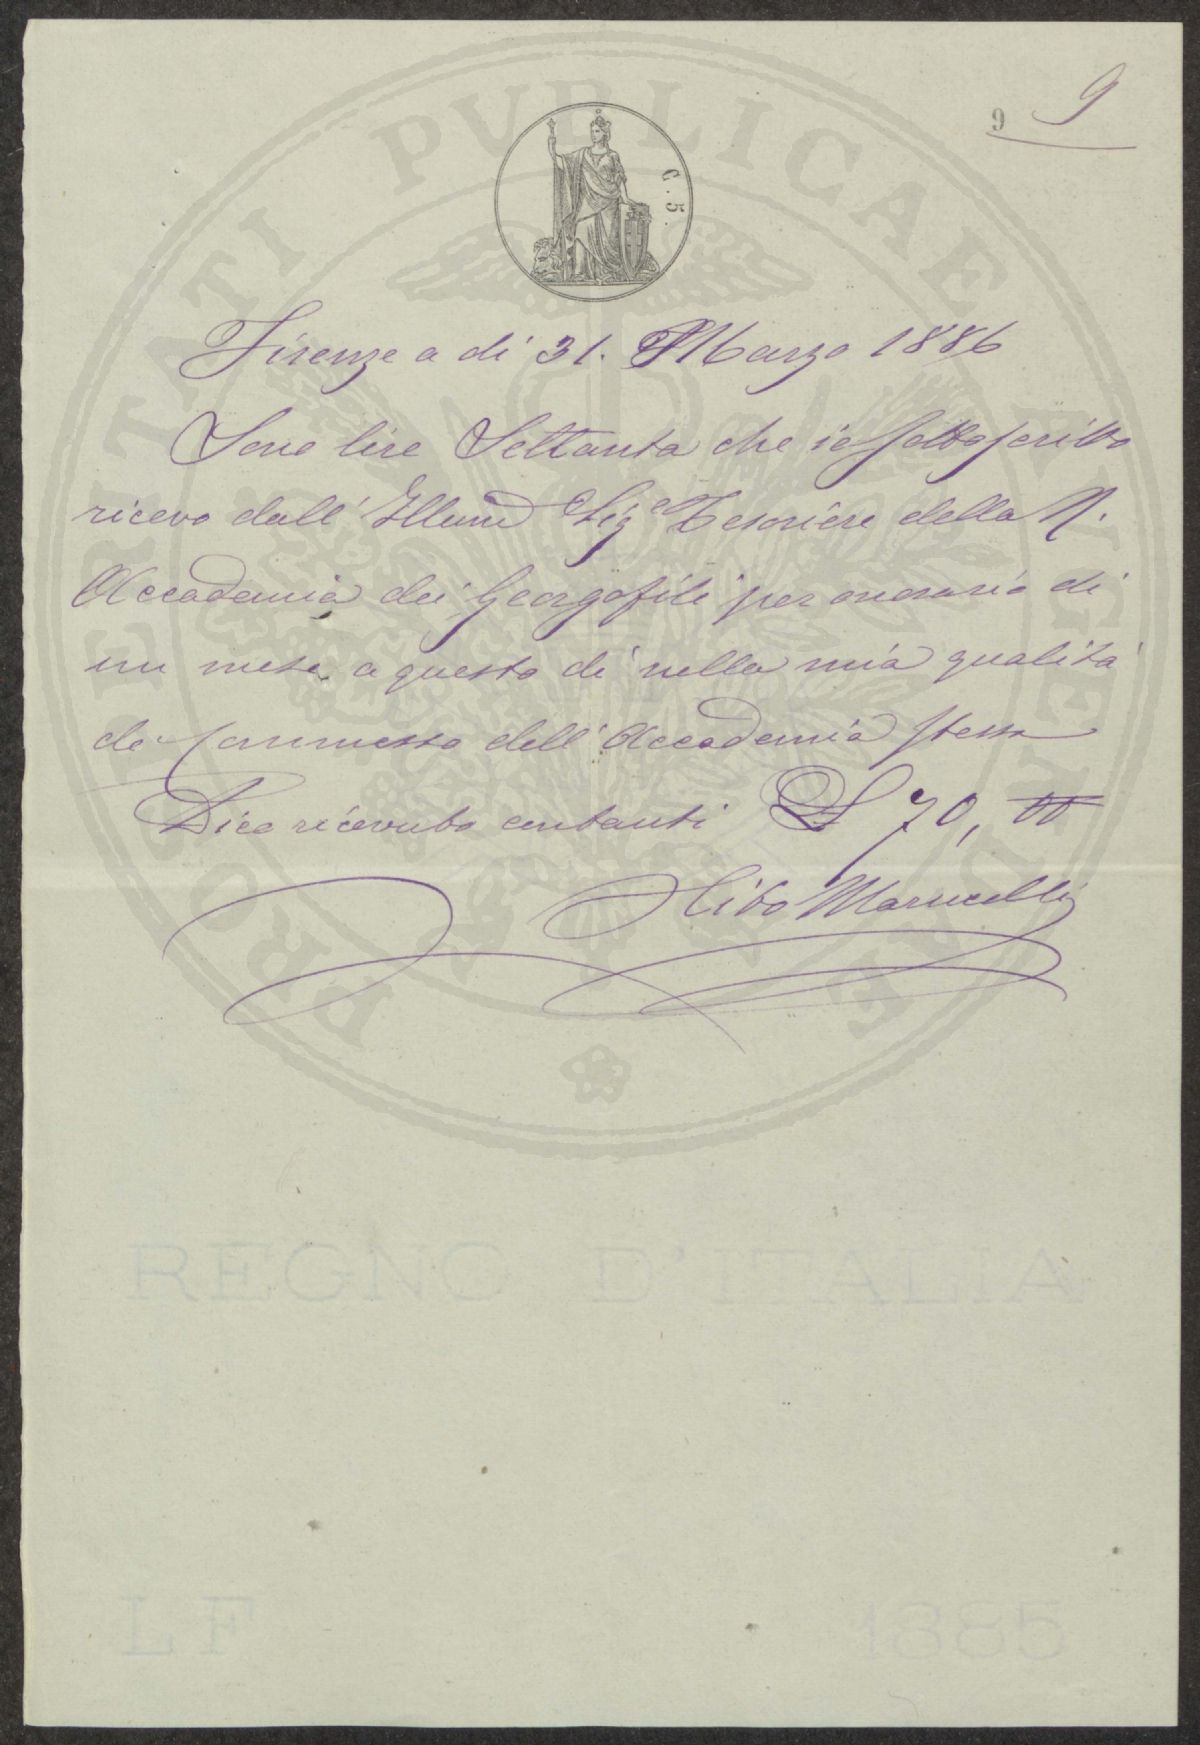 9 9
C. 5.
PROSPERITATI PUBLICAE AUGENDAE
Firenze a di 31. Marzo 1886
Sono lire Settanta che io sottoscritto
ricevo dall' Illmo Sig Tesoriere della R.
Accademia dei Georgofili per onorario di
un mese a questo dì nella mia qualità
di Commesso dell' Accademia stessa
Dico ricevuto contanti L 70, 00
Cibo Marucelli
REGNO D'ITALIA
LF 1885